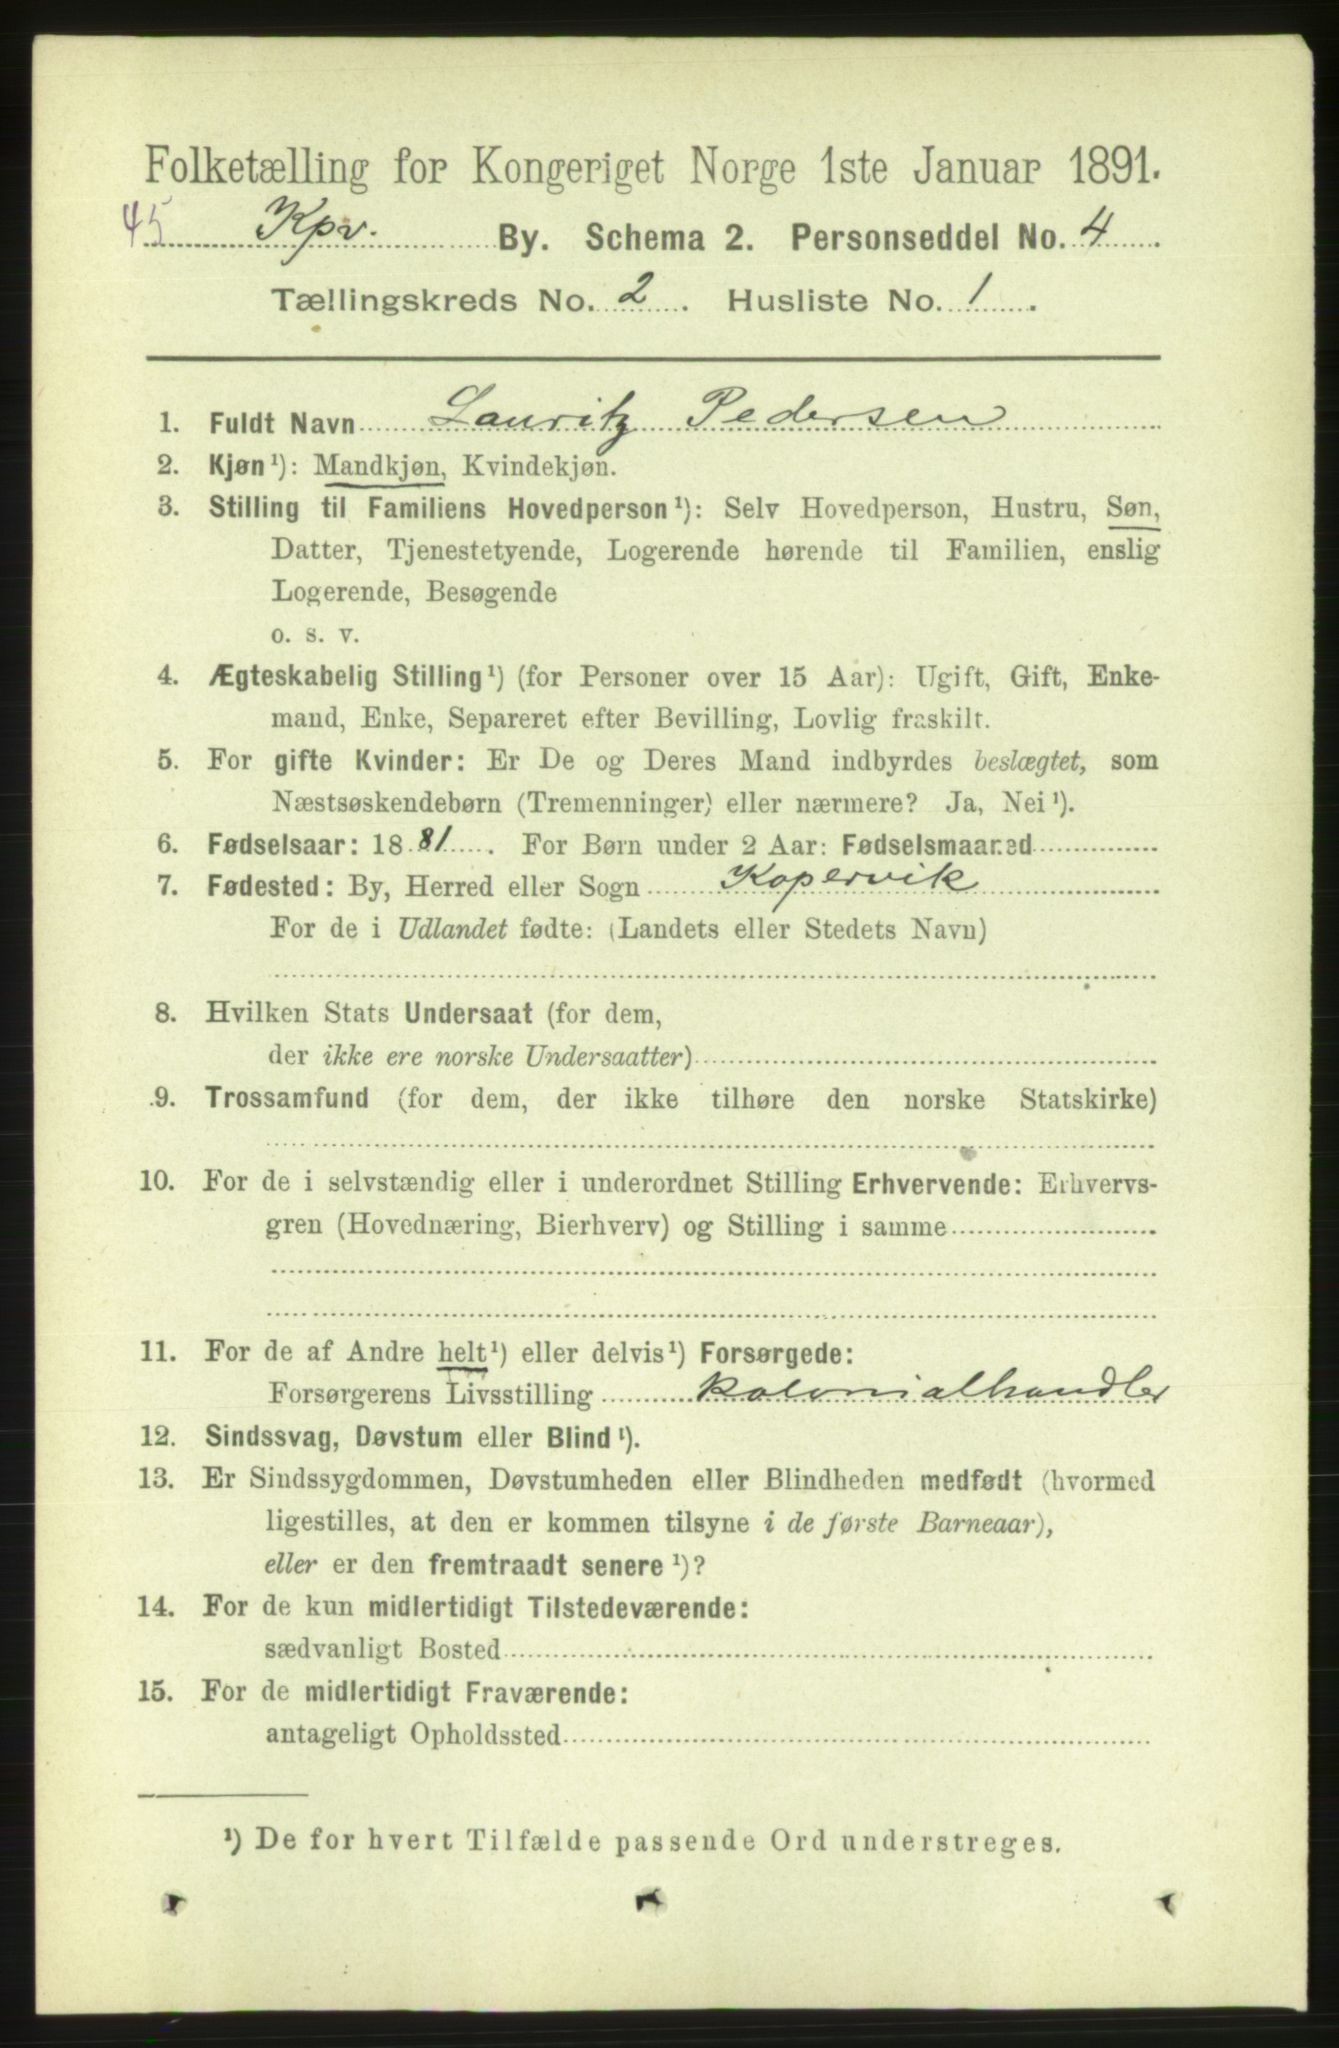 Folketælling for Kongeriget Norge 1ste Januar 1891.
45 Kpv. By. Schema 2. Personseddel No. 4
Tællingskreds No. 2. Husliste No. 1.
1. Fuldt Navn Lauritz Pedersen
2. Kjøn¹): Mandkjøn, Kvindekjøn.
3. Stilling til Familiens Hovedperson¹): Selv Hovedperson, Hustru, Søn,
Datter, Tjenestetyende, Logerende hørende til Familien, enslig
Logerende, Besøgende
o. s. v.
4. Ægteskabelig Stilling¹) (for Personer over 15 Aar): Ugift, Gift, Enke-
mand, Enke, Separeret efter Bevilling, Lovlig fraskilt.
5. For gifte Kvinder: Er De og Deres Mand indbyrdes beslægtet, som
Næstsøskendebørn (Tremenninger) eller nærmere? Ja, Nei¹).
6. Fødselsaar: 1881. For Børn under 2 Aar: Fødselsmaaned
7. Fødested: By, Herred eller Sogn Kopervik
For de i Udlandet fødte: (Landets eller Stedets Navn)
8. Hvilken Stats Undersaat (for dem,
der ikke ere norske Undersaatter)
9. Trossamfund (for dem, der ikke tilhøre den norske Statskirke)
10. For de i selvstændig eller i underordnet Stilling Erhvervende: Erhvervs-
gren (Hovednæring, Bierhverv) og Stilling i samme
11. For de af Andre helt¹) eller delvis¹) Forsørgede:
Forsørgerens Livsstilling kolonialhandler
12. Sindssvag, Døvstum eller Blind¹).
13. Er Sindssygdommen, Døvstumheden eller Blindheden medfødt (hvormed
ligestilles, at den er kommen tilsyne i de første Barneaar),
eller er den fremtraadt senere¹)?
14. For de kun midlertidigt Tilstedeværende:
sædvanligt Bosted
15. For de midlertidigt Fraværende:
antageligt Opholdssted
¹) De for hvert Tilfælde passende Ord understreges.